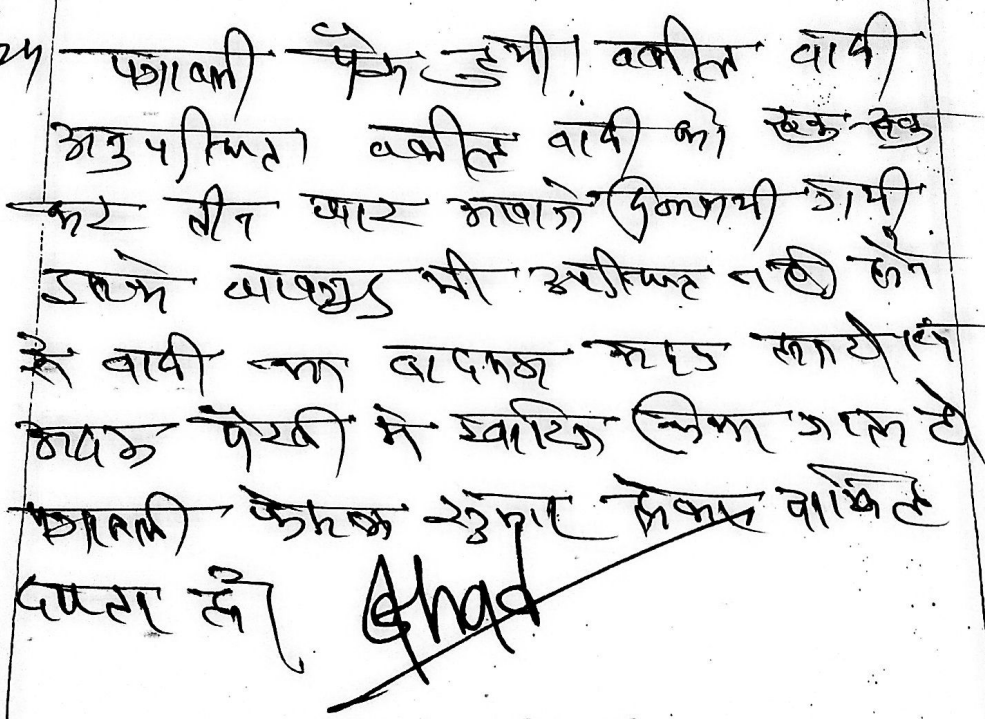 पत्रावली पेश हुयी। वकील वादी
अनुपस्थित। वकील वादी को रूक रूक
कर तीन बार आवाजे दिलवायी गयी
इसके बावजूद भी उपस्थित नही होने
से वादी का वाद अदम
अदम पैरवी मे खारिज किया जाता है
पत्रावली फैसल शुमार होकर दाखिल
दफ्तर हो।